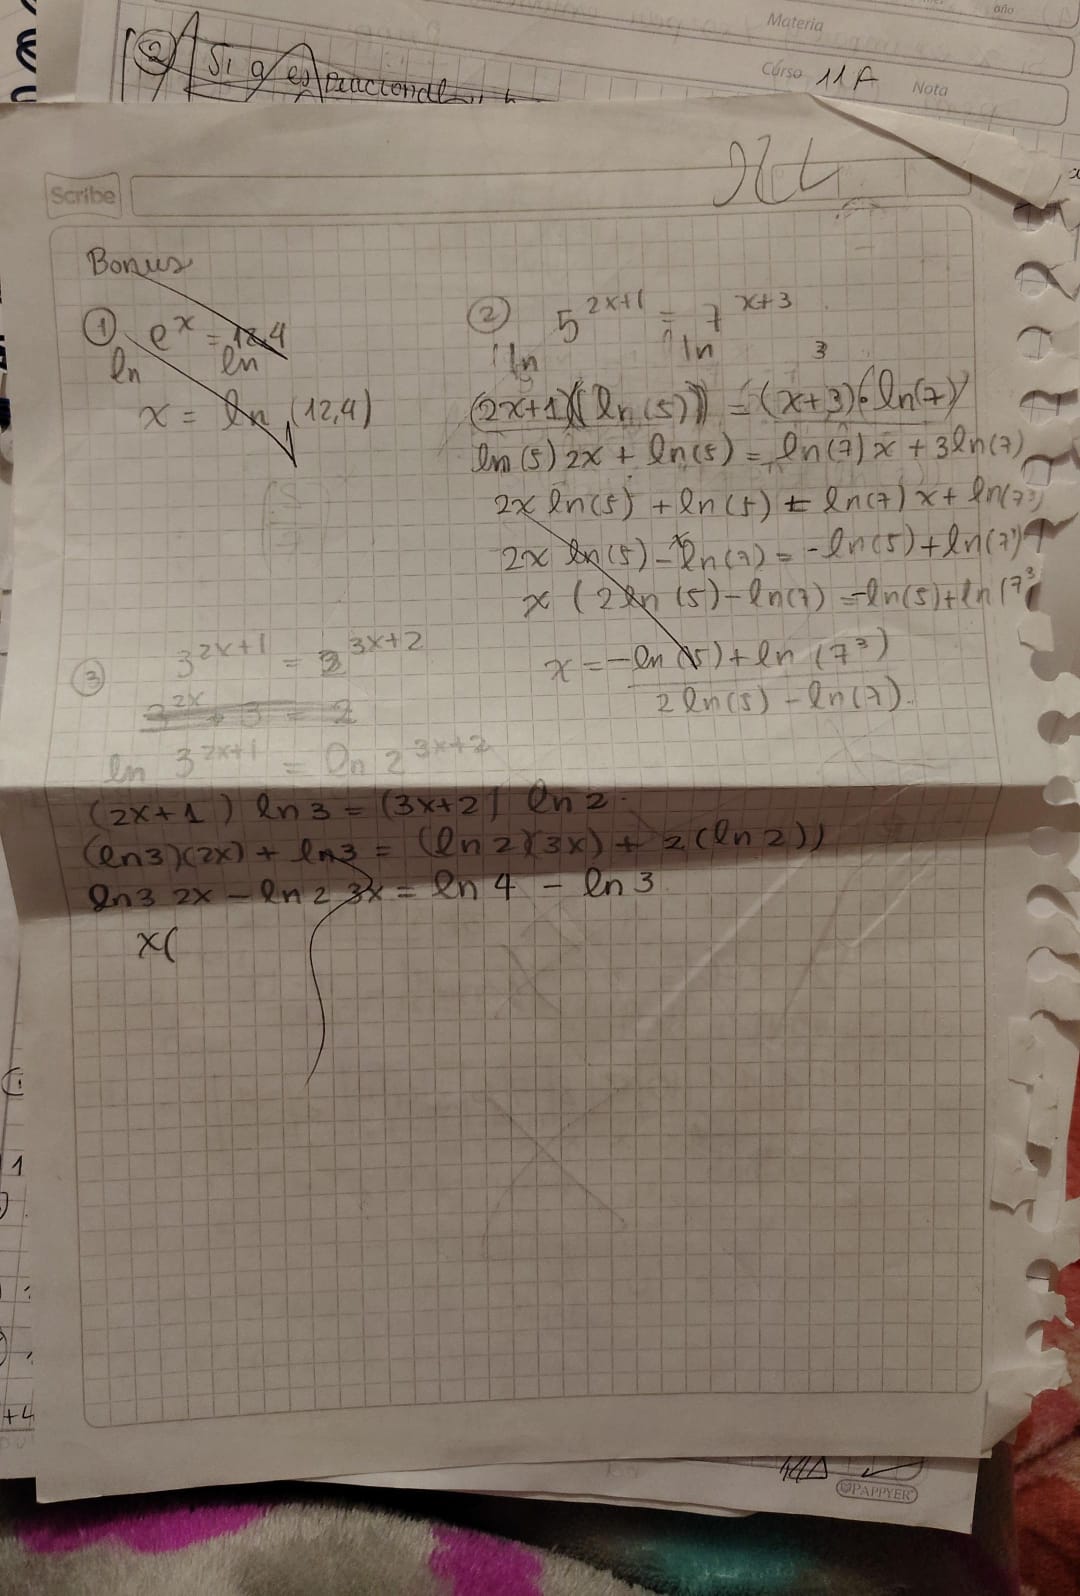 Materia
Curso 11A
Nota
año
② Si q es
Scribe
Bonus
① e^x = 12,4
ln ln
x = ln (12,4)
② 5^2x+1 = 7^x+3
ln ln
3
(2x+1)(ln(5)) = (x+3)·ln(7)
ln(5)2x + ln(5) = ln(7)x + 3ln(7)
2x ln(5) + ln(5) = ln(7)x + ln(7³)
2x ln(5) - x ln(7) = -ln(5) + ln(7³)
x (2ln(5) - ln(7) = -ln(5) + ln(7³
x = -ln(5) + ln(7³)
2ln(5) - ln(7).
③ 3^2x+1 = 2^3x+2
ln 3^2x+1 = ln 2^3x+2
(2x+1) ln3 = (3x+2) ln2.
(ln3)(2x) + ln3 = (ln2)(3x) + 2(ln2))
ln3 2x - ln2 3x = ln4 - ln3
x(
PAPPYER